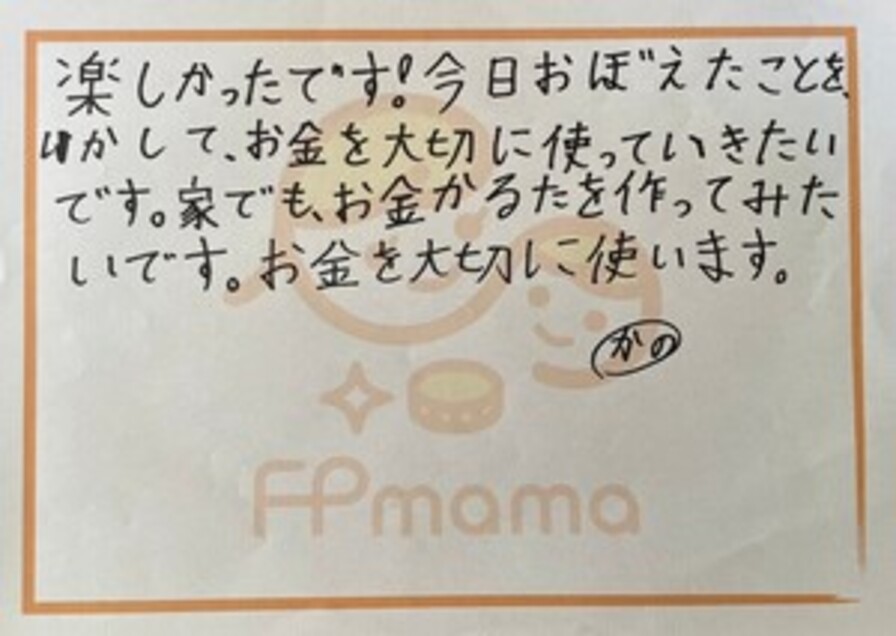 楽しかったです!今日おぼえたことを、
いかして、お金を大切に使っていきたい
です。家でも、お金かるたを作ってみた
いです。お金を大切に使います。
かの
FPmama